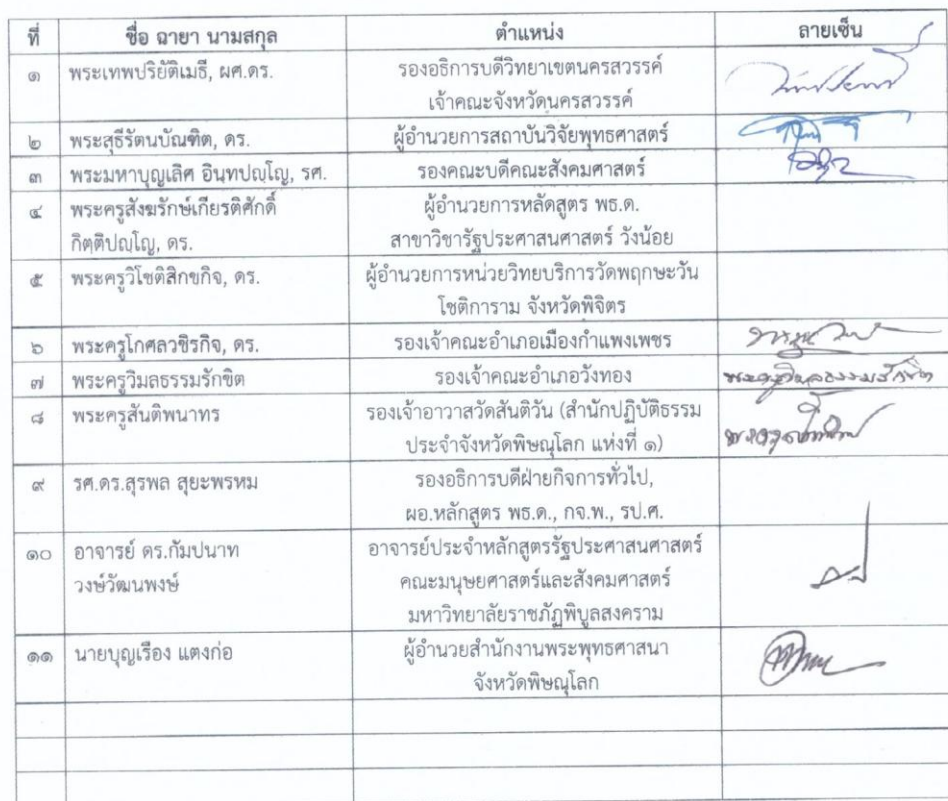 ที่ ชื่อ ฉายา นามสกุล ตำแหน่ง ลายเซ็น
๑ พระเทพปริยัติเมธี, ผศ.ดร. รองอธิการบดีวิทยาเขตนครสวรรค์
เจ้าคณะจังหวัดนครสวรรค์
๒ พระสุธีรัตนบัณฑิต, ดร. ผู้อำนวยการสถาบันวิจัยพุทธศาสตร์
๓ พระมหาบุญเลิศ อินฺทปญฺโญ, รศ. รองคณะบดีคณะสังคมศาสตร์
๔ พระครูสังฆรักษ์เกียรติศักดิ์ ผู้อำนวยการหลัดสูตร พธ.ด.
กิตฺติปญฺโญ, ดร. สาขาวิชารัฐประศาสนศาสตร์ วังน้อย
๕ พระครูวิโชติสิกขกิจ, ดร. ผู้อำนวยการหน่วยวิทยบริการวัดพฤกษะวัน
โชติการาม จังหวัดพิจิตร
๖ พระครูโกศลวชิรกิจ, ดร. รองเจ้าคณะอำเภอเมืองกำแพงเพชร
๗ พระครูวิมลธรรมรักขิต รองเจ้าคณะอำเภอวังทอง พระครูวิมลธรรมรักขิต
๘ พระครูสันติพนาทร รองเจ้าอาวาสวัดสันติวัน (สำนักปฏิบัติธรรม
ประจำจังหวัดพิษณุโลก แห่งที่ ๑)
๙ รศ.ดร.สุรพล สุยะพรหม รองอธิการบดีฝ่ายกิจการทั่วไป,
ผอ.หลักสูตร พธ.ด., กจ.พ., รป.ศ.
๑๐ อาจารย์ ดร.กัมปนาท อาจารย์ประจำหลักสูตรรัฐประศาสนศาสตร์
วงษ์วัฒนพงษ์ คณะมนุษยศาสตร์และสังคมศาสตร์
มหาวิทยาลัยราชภัฏพิบูลสงคราม
๑๑ นายบุญเรือง แตงก่อ ผู้อำนวยสำนักงานพระพุทธศาสนา
จังหวัดพิษณุโลก